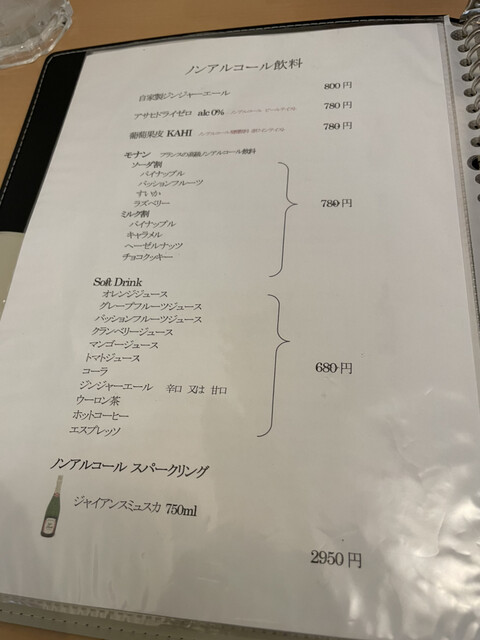 ノンアルコール飲料
自家製ジンジャーエール 800円
アサヒドライゼロ alc0% ノンアルコール ビールテイスト 780円
葡萄果皮 KAHI 780円
モナン フランスの高級ノンアルコール飲料
ソーダ割
パイナップル
パッションフルーツ
すいか
ラズベリー
780円
ミルク割
パイナップル
キャラメル
ヘーゼルナッツ
チョコクッキー
Soft Drink
オレンジジュース
グレープフルーツジュース
パッションフルーツジュース
クランベリージュース
マンゴージュース
680円
トマトジュース
コーラ
ジンジャーエール 辛口 又は 甘口
ウーロン茶
ホットコーヒー
エスプレッソ
ノンアルコール スパークリング
ジャイアンスミュスカ 750ml
2950円